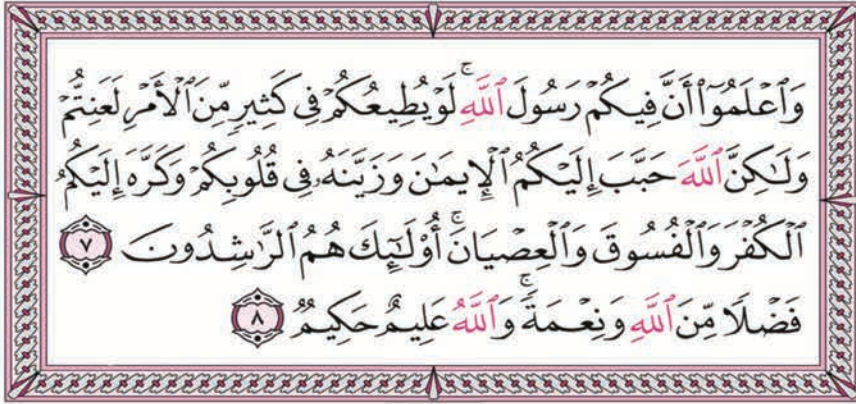 وَٱعۡلَمُوٓاْ أَنَّ فِيكُمۡ رَسُولَ ٱللَّهِۚ لَوۡ يُطِيعُكُمۡ فِي كَثِيرٖ مِّنَ ٱلۡأَمۡرِ لَعَنِتُّمۡ
وَلَٰكِنَّ ٱللَّهَ حَبَّبَ إِلَيۡكُمُ ٱلۡإِيمَٰنَ وَزَيَّنَهُۥ فِي قُلُوبِكُمۡ وَكَرَّهَ إِلَيۡكُمُ
ٱلۡكُفۡرَ وَٱلۡفُسُوقَ وَٱلۡعِصۡيَانَۚ أُوْلَٰٓئِكَ هُمُ ٱلرَّٰشِدُونَ ٧
فَضۡلٗا مِّنَ ٱللَّهِ وَنِعۡمَةٗۚ وَٱللَّهُ عَلِيمٌ حَكِيمٞ ٨